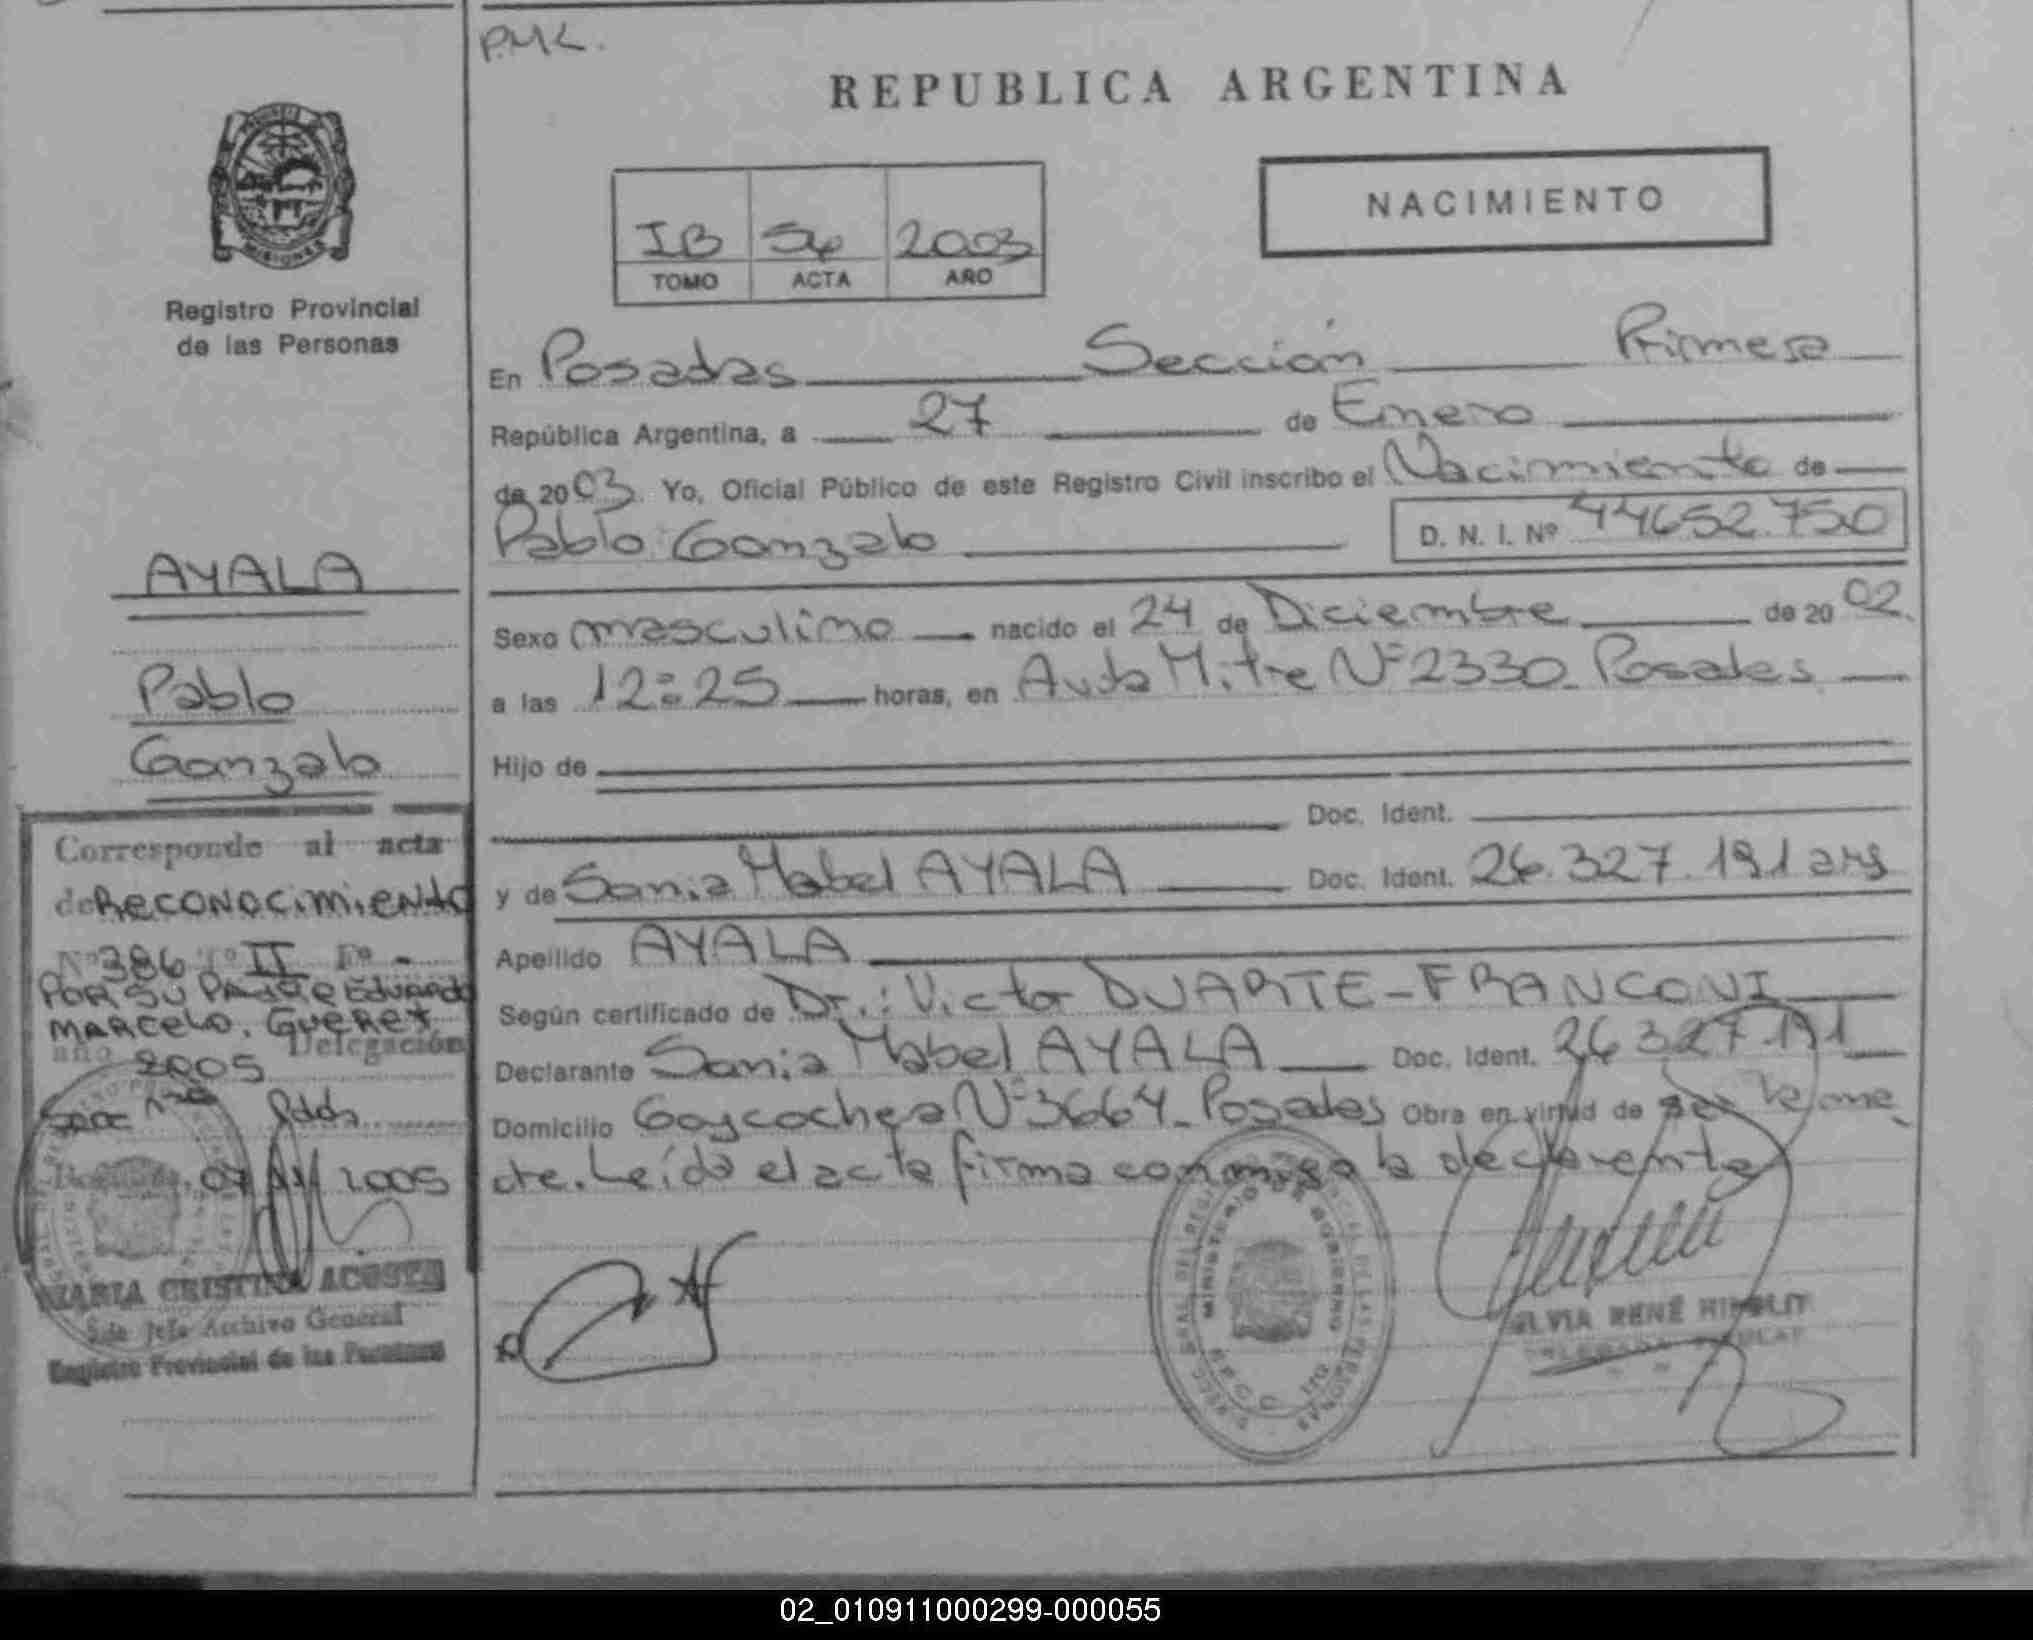 P.M.L.
REPUBLICA ARGENTINA
NACIMIENTO
IB 54 2003
TOMO ACTA AÑO
MISIONES
Registro Provincial
de las Personas
En Posadas Sección Primera
República Argentina, a 27 de Enero
de 2003. Yo, Oficial Público de este Registro Civil inscribo el Nacimiento de
Pablo Gonzalo D. N. I. Nº 44652.750
AYALA
Pablo
Gonzalo
Sexo masculino nacido el 24 de Diciembre de 2002.
a las 12:25 horas, en Avda Mitre Nº 2330. Posadas
Hijo de
Doc. Ident.
y de Sonia Mabel AYALA Doc. Ident. 26.327.191 ars
Apellido AYALA
Según certificado de Dr.: Victor DUARTE-FRANCONI
Declarante Sonia Mabel AYALA Doc. Ident. 26327191
Domicilio Goycochea Nº 3664. Posadas Obra en virtud de ser la
dte. Leído el acta firma conmigo la declarante
Corresponde al acta
de Reconocimiento
Nº 386 Tº II Fº -
Por su Padre Eduardo
Marcelo. Guerex
año 2005 Delegación
Pdas
Posadas, 07 2005
MARIA CRISTINA ACOSTA
Archivo General
Registro Provincial de las Personas
MINISTERIO DE GOBIERNO
SILVIA RENÉ
02_010911000299-000055